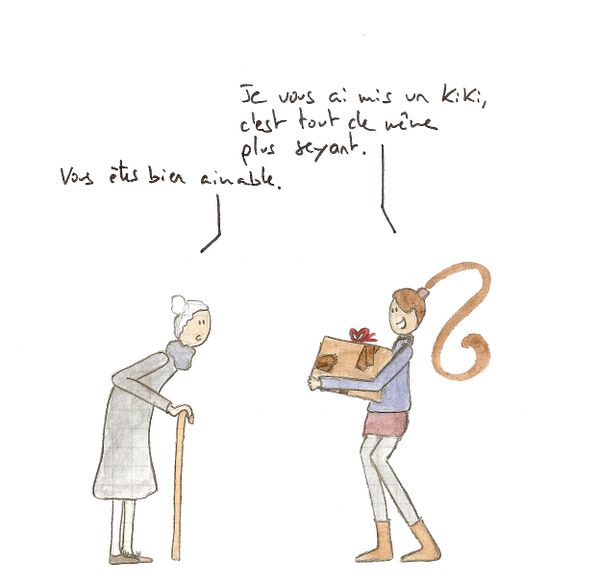 Je vous ai mis un kiki,
c'est tout de même
plus seyant.
Vous êtes bien aimable.